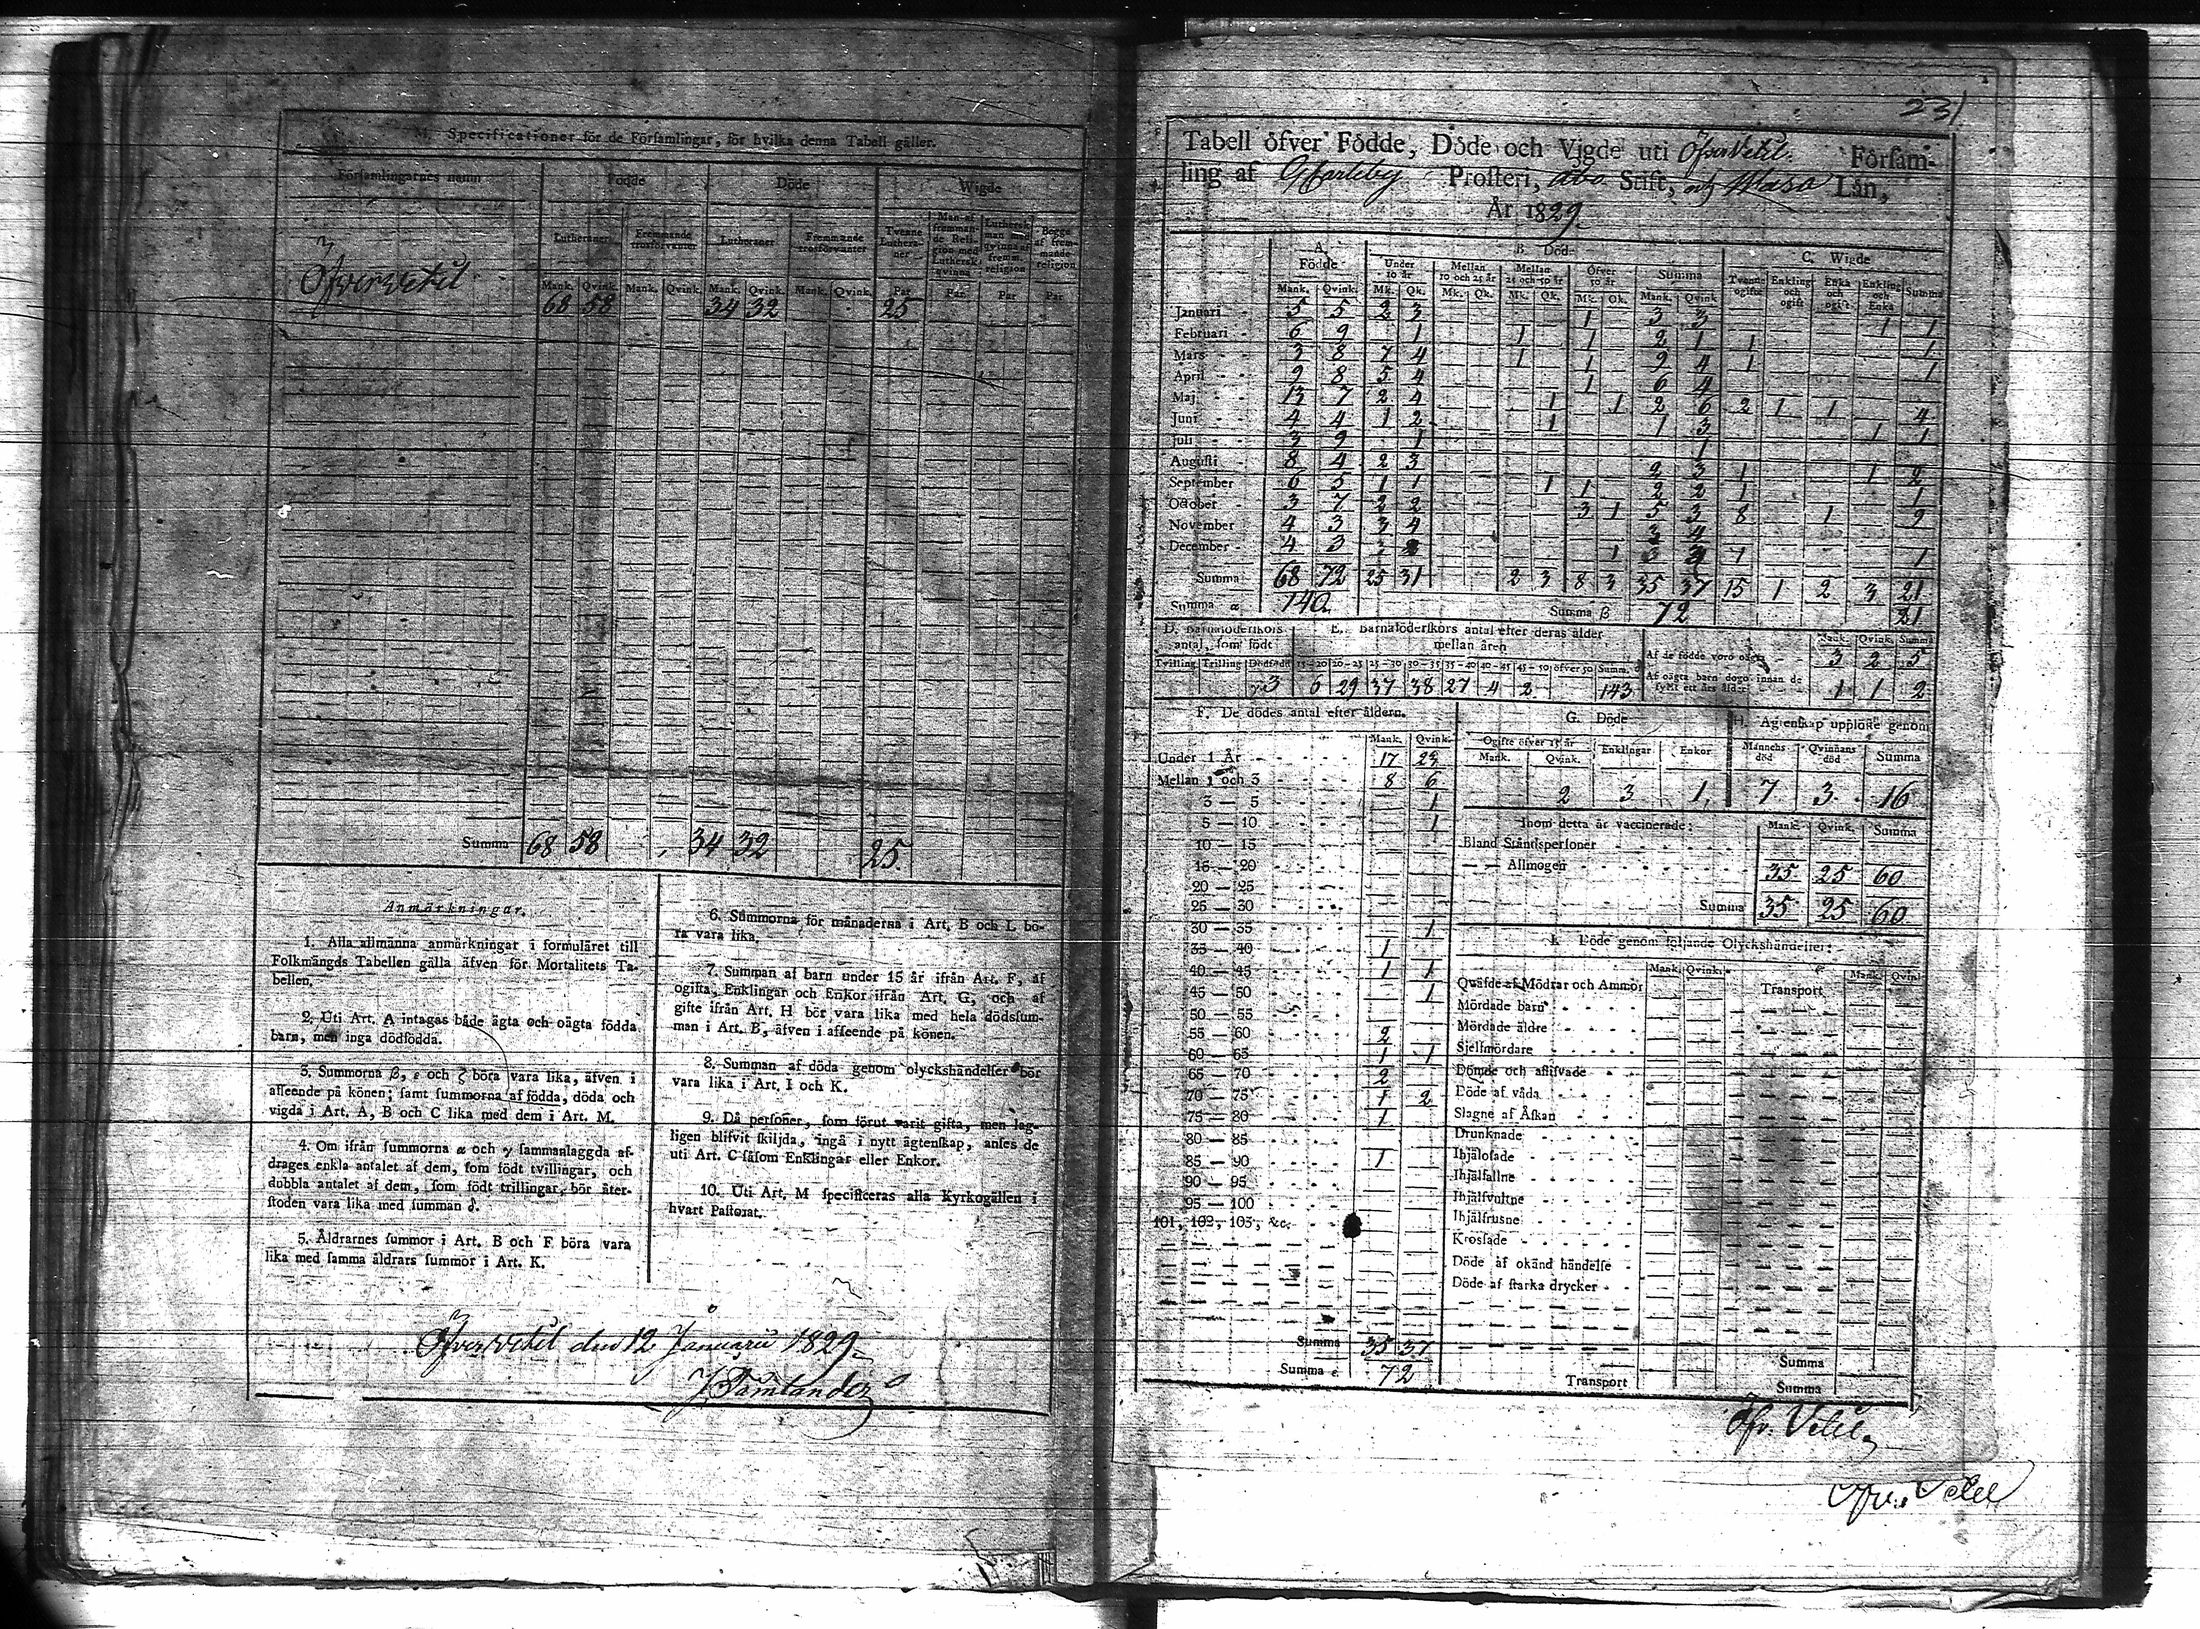 M. Specificationer för de Förſamlingar, för hvilka denna Tabell gäller.
Förſamlingarnes namn Födde Döde Wigde
Lutheraner Fremmande trosförvanter Lutheraner Fremmande trosförvanter Tvenne Lutheraner Man af fremmande Religion med Lutherſk qvinna Lutherſk man och qvinna af fremm. religion Begge af fremmande religion
Mank. Qvink. Mank. Qvink. Mank. Qvink. Mank. Qvink. Par Par Par Par
Öfvervetil 68 58 34 32 25
Summa 68 58 34 32 25
Anmärkningar.
1. Alla allmänna anmärkningar i formuläret till
Folkmängds Tabellen gälla äfven för Mortalitets Ta-
bellen.
2. Uti Art. A intagas både ägta och oägta födda
barn, men inga dödfödda.
3. Summorna β, ε och ζ böra vara lika, äfven i
afſeende på könen; ſamt ſummorna af födda, döda och
vigda i Art. A, B och C lika med dem i Art. M.
4. Om ifrån ſummorna α och γ ſammanlaggda af-
drages enkla antalet af dem, ſom födt tvillingar, och
dubbla antalet af dem, ſom födt trillingar, bör åter-
ſtoden vara lika med ſumman δ.
5. Åldrarnes ſummor i Art. B och F böra vara
lika med ſamma åldrars ſummor i Art. K.
6. Summorna för månaderna i Art. B och L bö-
ra vara lika.
7. Summan af barn under 15 år ifrån Art. F, af
ogifta, Enklingar och Enkor ifrån Art. G, och af
gifte ifrån Art. H bör vara lika med hela dödsſum-
man i Art. B, äfven i afſeende på könen.
8. Summan af döda genom olyckshändelſer bör
vara lika i Art. I och K.
9. Då perſoner, ſom förut varit gifta, men lag-
ligen blifvit ſkiljda, ingå i nytt ägtenſkap, anſes de
uti Art. C ſåſom Enklingar eller Enkor.
10. Uti Art. M ſpecificeras alla Kyrkogällen i
hvart Paſtorat.
Öfvervetil den 12 Januarii 1829
231
Tabell öfver Födde, Döde och Vigde uti Öfvervetil Förſam-
ling af GCarleby Proſteri, Åbo Stift, och Wasa Län,
År 1829
A. Födde B. Döde C. Wigde
Under 10 år Mellan 10 och 25 år Mellan 25 och 50 år Öfver 50 år Summa Tvenne ogifte Enkling och ogift Enka och ogift Enkling och Enka Summa
Mank. Qvink. Mk. Qk. Mk. Qk. Mk. Qk. Mk. Qk. Mank. Qvink
Januari 5 5 2 3 1 3 3 1 1
Februari 6 9 1 1 1 2 1 1 1
Mars 3 8 7 4 1 1 9 4 1 1
April 9 8 5 4 1 6 4
Maj 13 7 2 4 1 1 2 6 2 1 1 4
Juni 4 4 1 2 1 1 3 1 1
Juli 3 9 1 1
Auguſti 8 4 2 3 2 3 1 1 2
September 6 5 1 1 1 1 2 2 1 1
October 3 7 2 2 3 1 5 3 8 1 9
November 4 3 3 4 3 4
December 4 3 1 1 1
Summa 68 72 25 31 2 3 8 3 35 37 15 1 2 3 21
Summa α 140 Summa β 72 21
D. Barnaföderſkors antal, ſom födt
E. Barnaföderſkors antal efter deras ålder mellan åren
Mank. Qvink. Summa
Tvilling Trilling Dödfödd 15-20 20-25 25-30 30-35 35-40 40-45 45-50 öfver 50 Summ. δ
γ 3 6 29 37 38 27 4 2 143
Af de födde voro oägta 3 2 5
Af oägta barn dogo innan de fyllt ett års ålder 1 1 2
F. De dödes antal efter åldern.
Mank. Qvink.
Under 1 År 17 23
Mellan 1 och 3 8 6
3 — 5 1
5 — 10 1
10 — 15
15 — 20
20 — 25
25 — 30
30 — 35 1
35 — 40 1
40 — 45 1 1
45 — 50 1
50 — 55
55 — 60 2
60 — 65 1 1
65 — 70 2
70 — 75 1 2
75 — 80 1
80 — 85
85 — 90 1
90 — 95
95 — 100
101, 102, 103, &c.
Summa 35 37
Summa ε 72
G. Döde
Ogifte öfver 15 år Enklingar Enkor
Mank. Qvink.
2 3 1
H. Ägtenſkap upplöſte genom
Mannens död Qvinnans död Summa
7 3 16
Inom detta år vaccinerade: Mank. Qvink. Summa
Bland Ståndsperſoner
— — Allmogen 35 25 60
Summa 35 25 60
I. Döde genom följande Olyckshändelſer:
Mank. Qvink. Mank. Qvink
Quäfde af Mödrar och Ammor Transport
Mördade barn
Mördade äldre
Sjelfmördare
Dömde och aflifvade
Döde af våda
Slagne af Åſkan
Drunknade
Ihjälofade
Ihjälfallne
Ihjälſvultne
Ihjälfrusne
Krosſade
Döde af okänd händelſe
Döde af ſtarka drycker
Summa
Transport Summa
Öfv. Vetil
Öfver Vetil